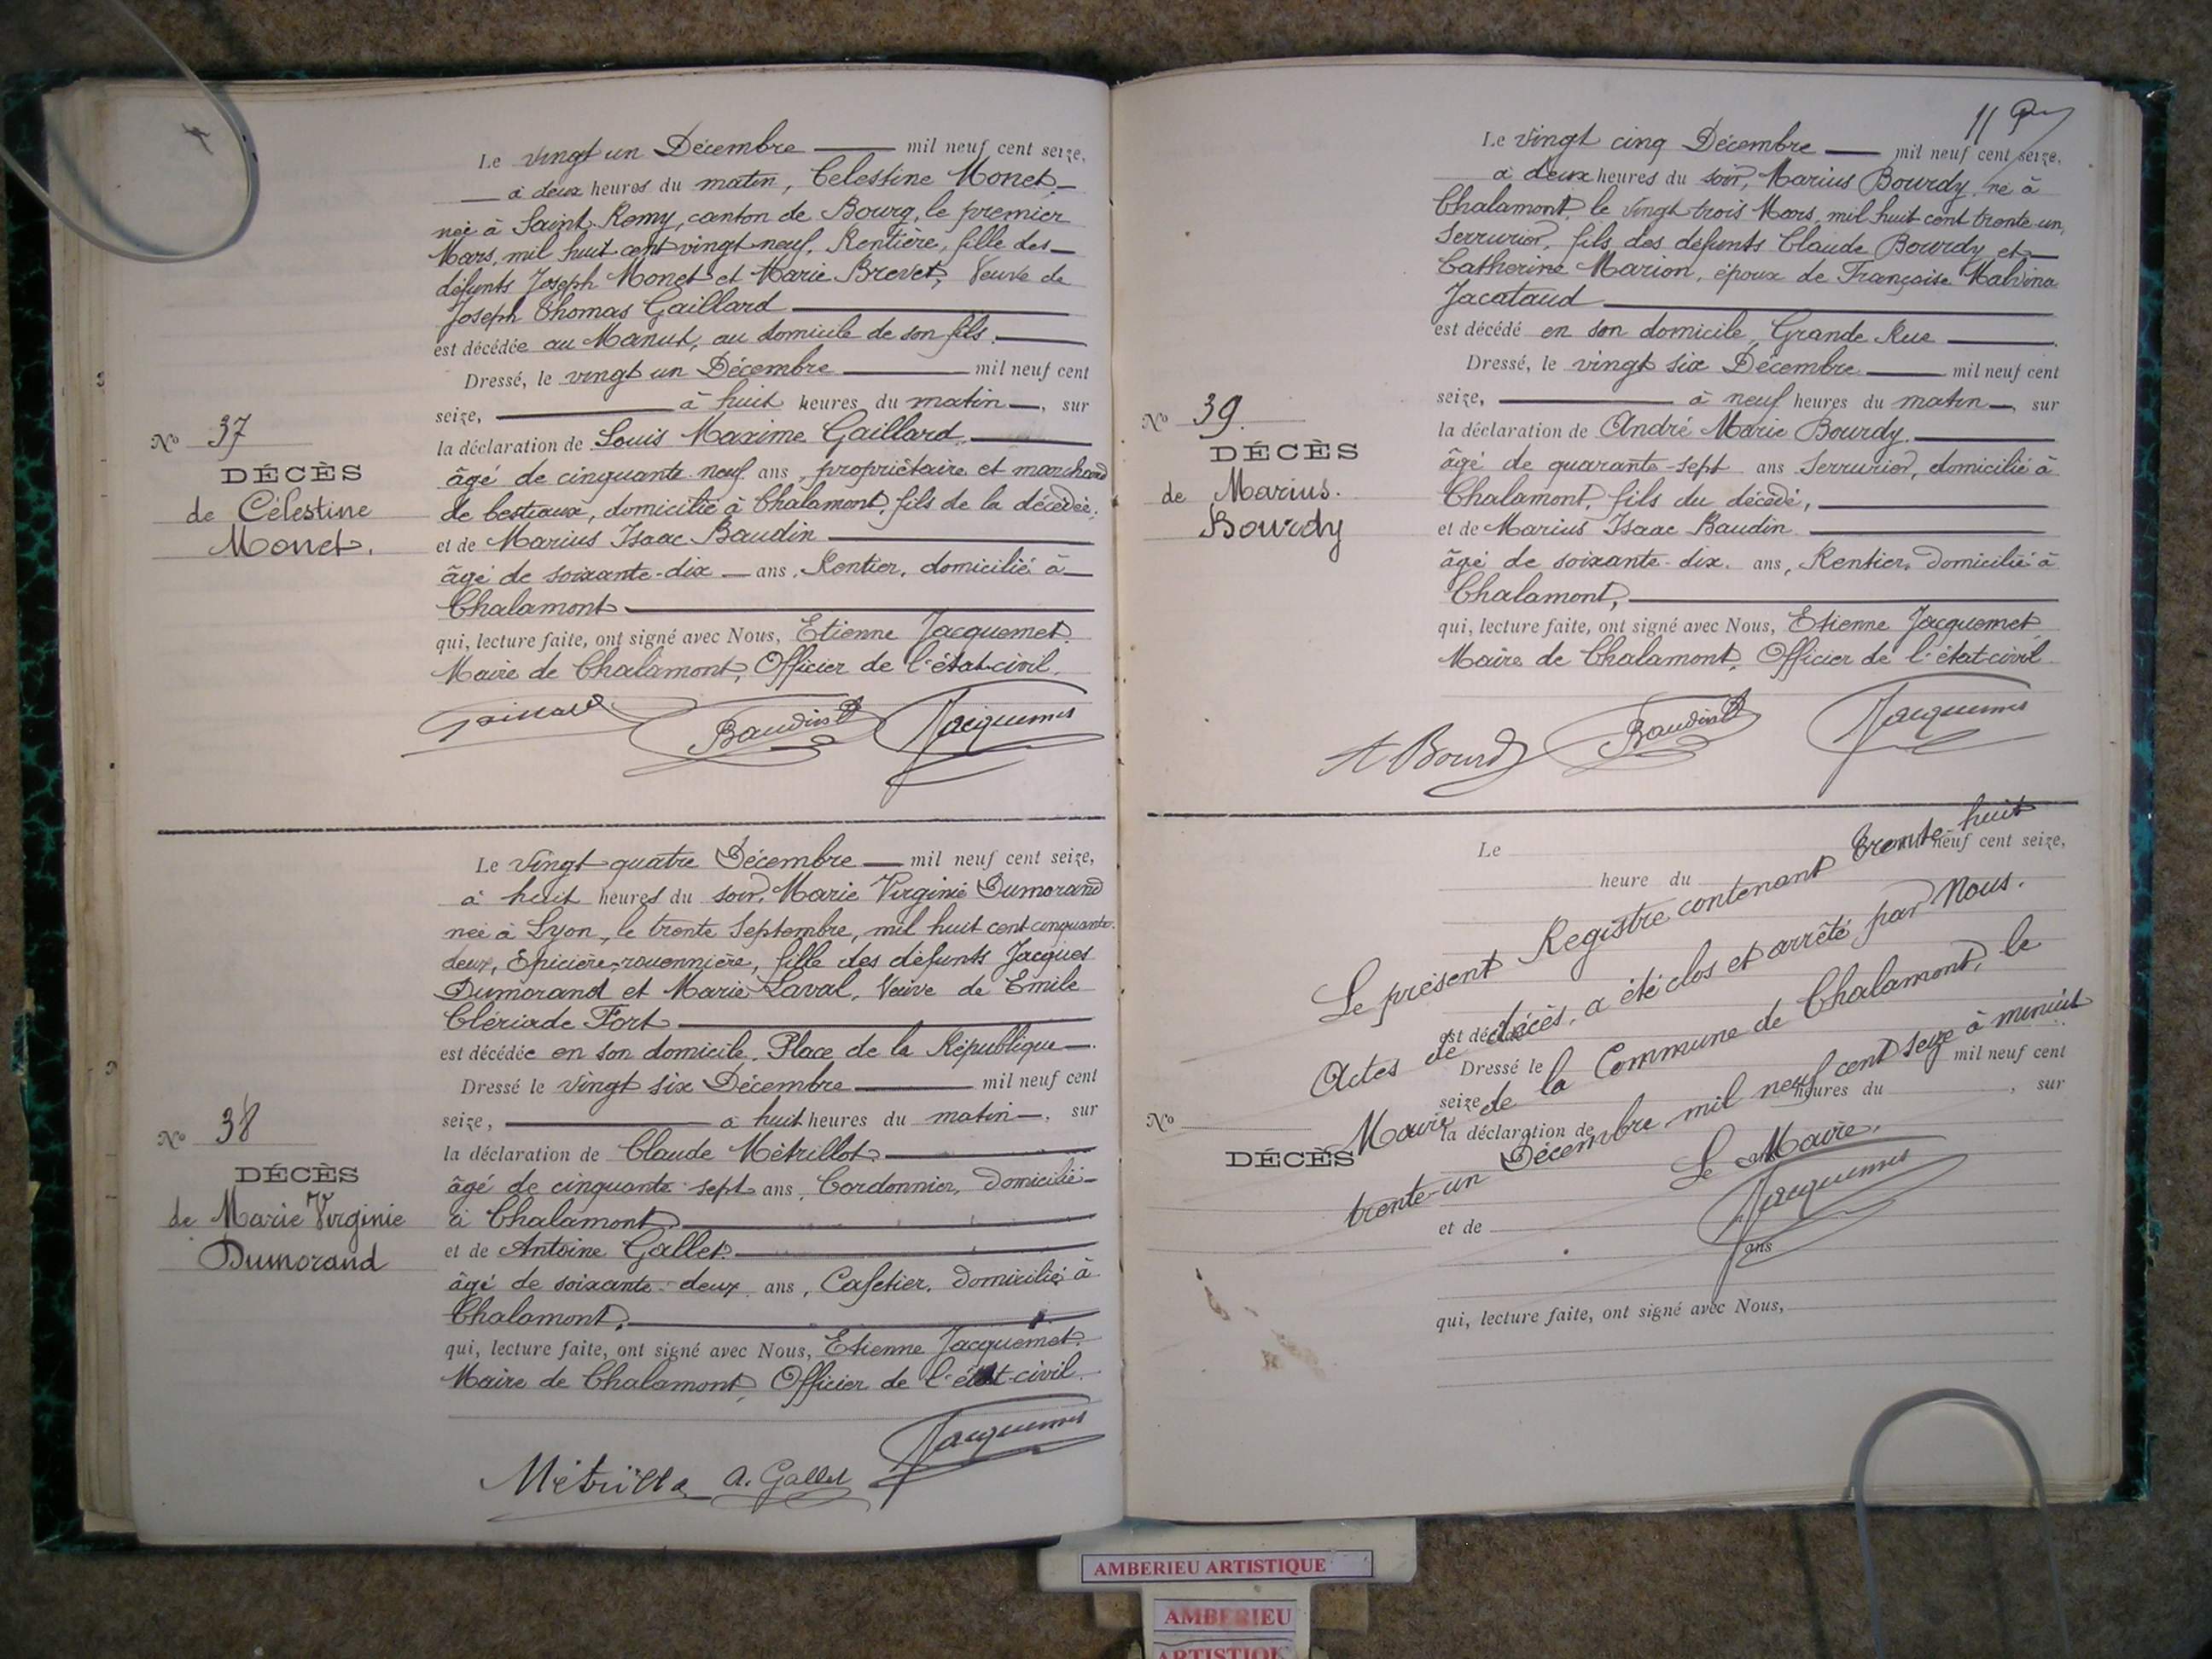 Le vingt un Décembre mil neuf cent seize,
à deux heures du matin, Celestine Monet,
née à Saint Remy, canton de Bourg, le premier
Mars, mil huit cent vingt neuf, Rentière, fille des
défunts Joseph Monet et Marie Brevet, Veuve de
Joseph Thomas Gaillard
est décédée au Manut, au domicile de son fils.
Dressé, le vingt un Décembre mil neuf cent
seize, à huit heures du matin, sur
la déclaration de Louis Maxime Gaillard,
âgé de cinquante neuf ans, propriétaire et marchand
de bestiaux, domicilié à Chalamont, fils de la décédée,
et de Marius Isaac Baudin
âgé de soixante-dix ans, Rentier, domicilié à
Chalamont
qui, lecture faite, ont signé avec Nous, Etienne Jacquemet
Maire de Chalamont, Officier de l'état-civil.
Nº 37
DÉCÈS
de Célestine
Monet.
Gaillard Baudin Jacquemet
Le Vingt quatre Décembre mil neuf cent seize,
à huit heures du soir, Marie Virginie Dumorand
née à Lyon, le trente Septembre, mil huit cent cinquante-
deux, Epicière-rouennière, fille des défunts Jacques
Dumorand et Marie Laval, Veuve de Emile
Clériade Fort
est décédée en son domicile, Place de la République.
Dressé le Vingt six Décembre mil neuf cent
seize, à huit heures du matin, sur
la déclaration de Claude Métrillot,
âgé de cinquante sept ans, Cordonnier, domicilié
à Chalamont
et de Antoine Gallet
âgé de soixante-deux ans, Cafetier, domicilié à
Chalamont,
qui, lecture faite, ont signé avec Nous, Etienne Jacquemet
Maire de Chalamont, Officier de l'état-civil.
Nº 38
DÉCÈS
de Marie Virginie
Dumorand
A. Gallet Jacquemet
11
Le vingt cinq Décembre mil neuf cent seize,
à deux heures du soir, Marius Bourdy, né à
Chalamont, le vingt trois Mars, mil huit cent trente-un,
Serrurier, fils des défunts Claude Bourdy et
Catherine Marion, époux de Françoise Malvina
Jacataud
est décédé en son domicile, Grande Rue
Dressé, le vingt six Décembre mil neuf cent
seize, à neuf heures du matin, sur
la déclaration de André Marie Bourdy.
âgé de quarante-sept ans Serrurier, domicilié à
Chalamont, fils du décédé,
et de Marius Isaac Baudin
âgé de soixante-dix ans, Rentier, domicilié à
Chalamont,
qui, lecture faite, ont signé avec Nous, Etienne Jacquemet
Maire de Chalamont, Officier de l'état-civil
Nº 39
DÉCÈS
de Marius.
Bourdy
A Bourdy Baudin Jacquemet
Le neuf cent seize,
heure du
est décédé
Dressé le mil neuf cent
seize, heures du , sur
la déclaration de
et de
ans
qui, lecture faite, ont signé avec Nous,
Nº
DÉCÈS
Le présent Registre contenant trente-huit
Actes de décès, a été clos et arrêté par Nous.
Maire de la Commune de Chalamont, le
trente-un Décembre mil neuf cent seize à minuit
Le Maire.
Jacquemet
AMBERIEU ARTISTIQUE
AMBERIEU